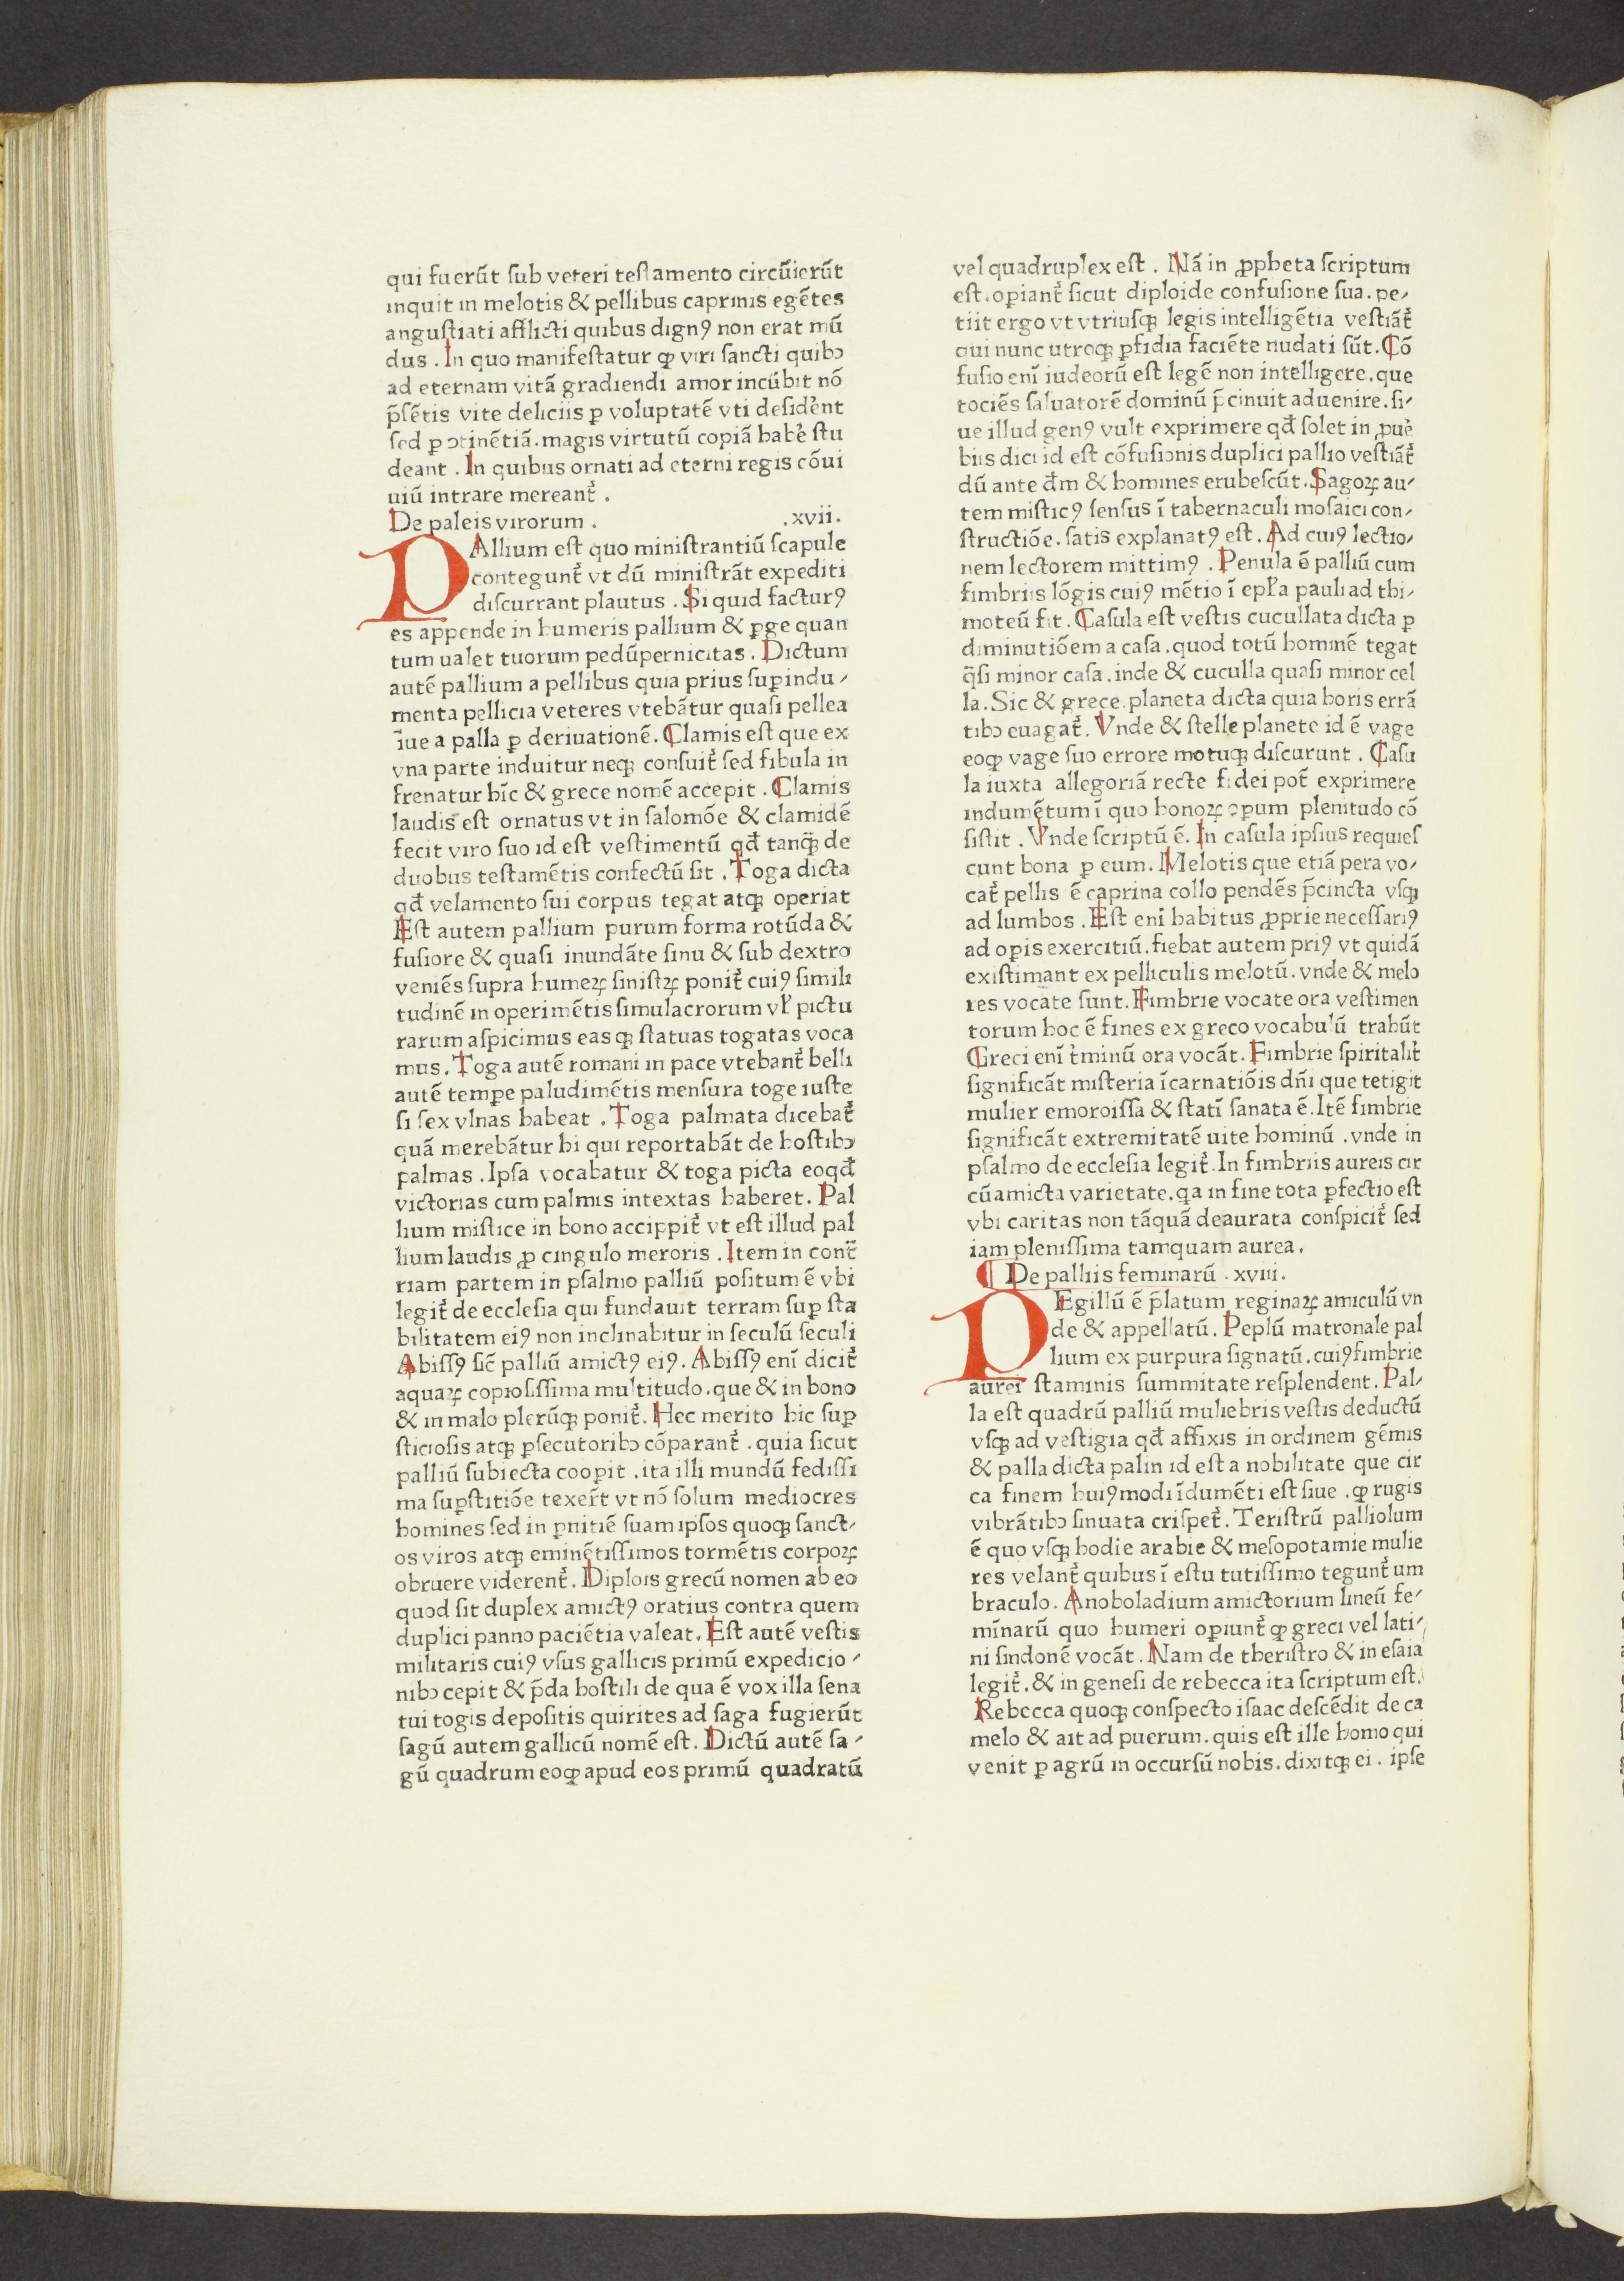 qui fuerūt ſub veteri teſtamento circūierūt
inquit in melotis & pellibus caprinis egētes
anguſtiati afflicti quibus dignꝰ non erat mū
dus . In quo manifeſtatur ꝙ viri ſancti quibꝫ
ad eternam vitā gradiendi amor incūbit nō
p̄ſētis vite deliciis ꝑ voluptatē vti deſiderēt
ſed ꝑ ꝯtinētiā . magis virtutū copiā habe᷑ ſtu
deant . In quibus ornati ad eterni regis cōui
uiū intrare mereant᷑ .
De paleis virorum . .xvii.
PAllium eſt quo miniſtrantiū ſcapule
contegunt᷑ vt dū miniſtrāt expediti
diſcurrant plautus . Si quid facturꝰ
es appende in humeris pallium & ꝑge quan
tum ualet tuorum pedūpernicitas . Dictum
autē pallium a pellibus quia prius ſuꝑindu⸗
menta pellicia veteres vtebātur quaſi pellea
ſiue a palla ꝑ deriuationē . Clamis eſt que ex
vna parte induitur neqꝫ conſuit᷑ ſed fibula in
frenatur hīc & grece nomē accepit . Clamis
laudis eſt ornatus vt in ſalomōe & clamidē
fecit viro ſuo id eſt veſtimentū qđ tanqꝫ de
duobus teſtamētis confectū ſit . Toga dicta
qđ velamento ſui corpus tegat atqꝫ operiat
Eſt autem pallium purum forma rotūda &
fuſiore & quaſi inundāte ſinu & ſub dextro
veniēs ſupra humeꝝ ſiniſtꝝ ponit᷑ cuiꝰ ſimili
tudinē in operimētis ſimulacrorum vł pictu
rarum aſpicimus easqꝫ ſtatuas togatas voca
mus . Toga autē romani in pace vtebant᷑ belli
autē tempe paludimētis menſura toge iuſte
ſi ſex vlnas habeat . Toga palmata dicebat᷑
quā merebātur hi qui reportabāt de hoſtibꝫ
palmas . Ipſa vocabatur & toga picta eoqđ
victorias cum palmis intextas haberet . Pal
lium miſtice in bono accippit᷑ vt eſt illud pal
lium laudis ꝓ cingulo meroris . Item in cont̄
riam partem in pſalmo palliū poſitum ē vbi
legit᷑ de eccleſia qui fundauit terram ſuꝑ ſta
bilitatem eiꝰ non inclinabitur in ſeculū ſeculi
Abiſſꝰ ſic̄ palliū amictꝰ eiꝰ . Abiſſꝰ enī dicit᷑
aquaꝝ copioſiſſima multitudo . que & in bono
& in malo plerūqꝫ ponit᷑ . Hec merito hic ſuꝑ
ſticioſis atqꝫ ꝑſecutoribꝫ cōparant᷑ . quia ſicut
palliū ſubiecta cooꝑit . ita illi mundū fediſſi
ma ſuꝑſtitiōe texer̄t vt nō ſolum mediocres
homines ſed in ꝑnitiē ſuam ipſos quoqꝫ ſanct⸗
os viros atqꝫ eminētiſſimos tormētis corpoꝝ
obruere viderent᷑ . Diplois grecū nomen ab eo
quod ſit duplex amictꝰ oratius contra quem
duplici panno paciētia valeat . Eſt autē veſtis
militaris cuiꝰ vſus gallicis primū expedicio⸗
nibꝫ cepit & p̄da hoſtili de qua ē vox illa ſena
tui togis depoſitis quirites ad ſaga fugierūt
ſagū autem gallicū nomē eſt . Dictū autē ſa⸗
gū quadrum eoꝙ apud eos primū quadratū
vel quadruplex eſt . Nā in ꝓpheta ſcriptum
eſt . oꝑiant᷑ ſicut diploide confuſione ſua . pe⸗
tiit ergo vt vtriuſqꝫ legis intelligētia veſtiāt᷑
qui nunc utroqꝫ ꝑfidia faciēte nudati ſūt . Cō
fuſio enī iudeorū eſt legē non intelligere . que
tociēs ſaluatorē dominū p̄cinuit aduenire . ſi⸗
ue illud genꝰ vult exprimere qđ ſolet in ꝓue᷑
biis dici id eſt cōfuſionis duplici pallio veſtiāt᷑
dū ante dm̄ & homines erubeſcūt . Sagoꝝ au⸗
tem miſticꝰ ſenſus ī tabernaculi moſaici con⸗
ſtructiōe . ſatis explanatꝰ eſt . Ad cuiꝰ lectio⸗
nem lectorem mittimꝰ . Penula ē palliū cum
fimbriis lōgis cuiꝰ mētio ī epł'a pauli ad thi⸗
moteū fit . Caſula eſt veſtis cucullata dicta ꝑ
diminutiōem a caſa . quod totū hominē tegat
q̄ſi minor caſa . inde & cuculla quaſi minor cel
la . Sic & grece planeta dicta quia horis errā
tibꝫ euagat᷑ . Vnde & ſtelle planete id ē vage
eoꝙ vage ſuo errore motuqꝫ diſcurunt . Caſu
la iuxta allegoriā recte fidei pot̄ exprimere
indumētum ī quo honoꝝ opum plenitudo cō
ſiſtit . Vnde ſcriptū ē . In caſula ipſius requieſ
cunt bona ꝑ eum . Melotis que etiā pera vo⸗
cat᷑ pellis ē caprina collo pendēs p̄cincta vſqꝫ
ad lumbos . Eſt enī habitus ꝓprie neceſſariꝰ
ad oꝑis exercitiū . fiebat autem priꝰ vt quidā
exiſtimant ex pelliculis melotū . vnde & melo
res vocate ſunt . Fimbrie vocate ora veſtimen
torum hoc ē fines ex greco vocabulū trahūt
Greci enī t᷑minū ora vocāt . Fimbrie ſpiritalit᷑
ſignificāt miſteria īcarnatiōis dn̄i que tetigit
mulier emoroiſſa & ſtatī ſanata ē . Itē fimbrie
ſignificāt extremitatē uite hominū . vnde in
pſalmo de eccleſia legit᷑ . In fimbriis aureis cir
cūamicta varietate . qa in fine tota ꝑfectio eſt
vbi caritas non tāquā deaurata conſpicit᷑ ſed
iam pleniſſima tamquam aurea .
¶ De palliis feminarū . xviii.
PEgillū ē p̄latum reginaꝝ amiculū vn
de & appellatū . Peplū matronale pal
lium ex purpura ſignatū . cuiꝰ fimbrie
aurei ſtaminis ſummitate reſplendent . Pal⸗
la eſt quadrū palliū muliebris veſtis deductū
vſqꝫ ad veſtigia qđ affixis in ordinem gēmis
& palla dicta palin id eſt a nobilitate que cir
ca finem huiꝰmodi īdumēti eſt ſiue . ꝙ rugis
vibrātibꝫ ſinuata criſpet᷑ . Teriſtrū palliolum
ē quo vſqꝫ hodie arabie & meſopotamie mulie
res velant᷑ quibus ī eſtu tutiſſimo tegunt᷑ um
braculo . Anoboladium amictorium lineū fe⸗
mīnarū quo humeri oꝑiunt᷑ ꝙ greci vel lati⸗
ni ſindonē vocāt . Nam de theriſtro & in eſaia
legit᷑ . & in geneſi de rebecca ita ſcriptum eſt .
Rebecca quoqꝫ conſpecto iſaac deſcēdit de ca
melo & ait ad puerum . quis eſt ille homo qui
venit ꝑ agrū in occurſū nobis . dixitqꝫ ei . ipſe